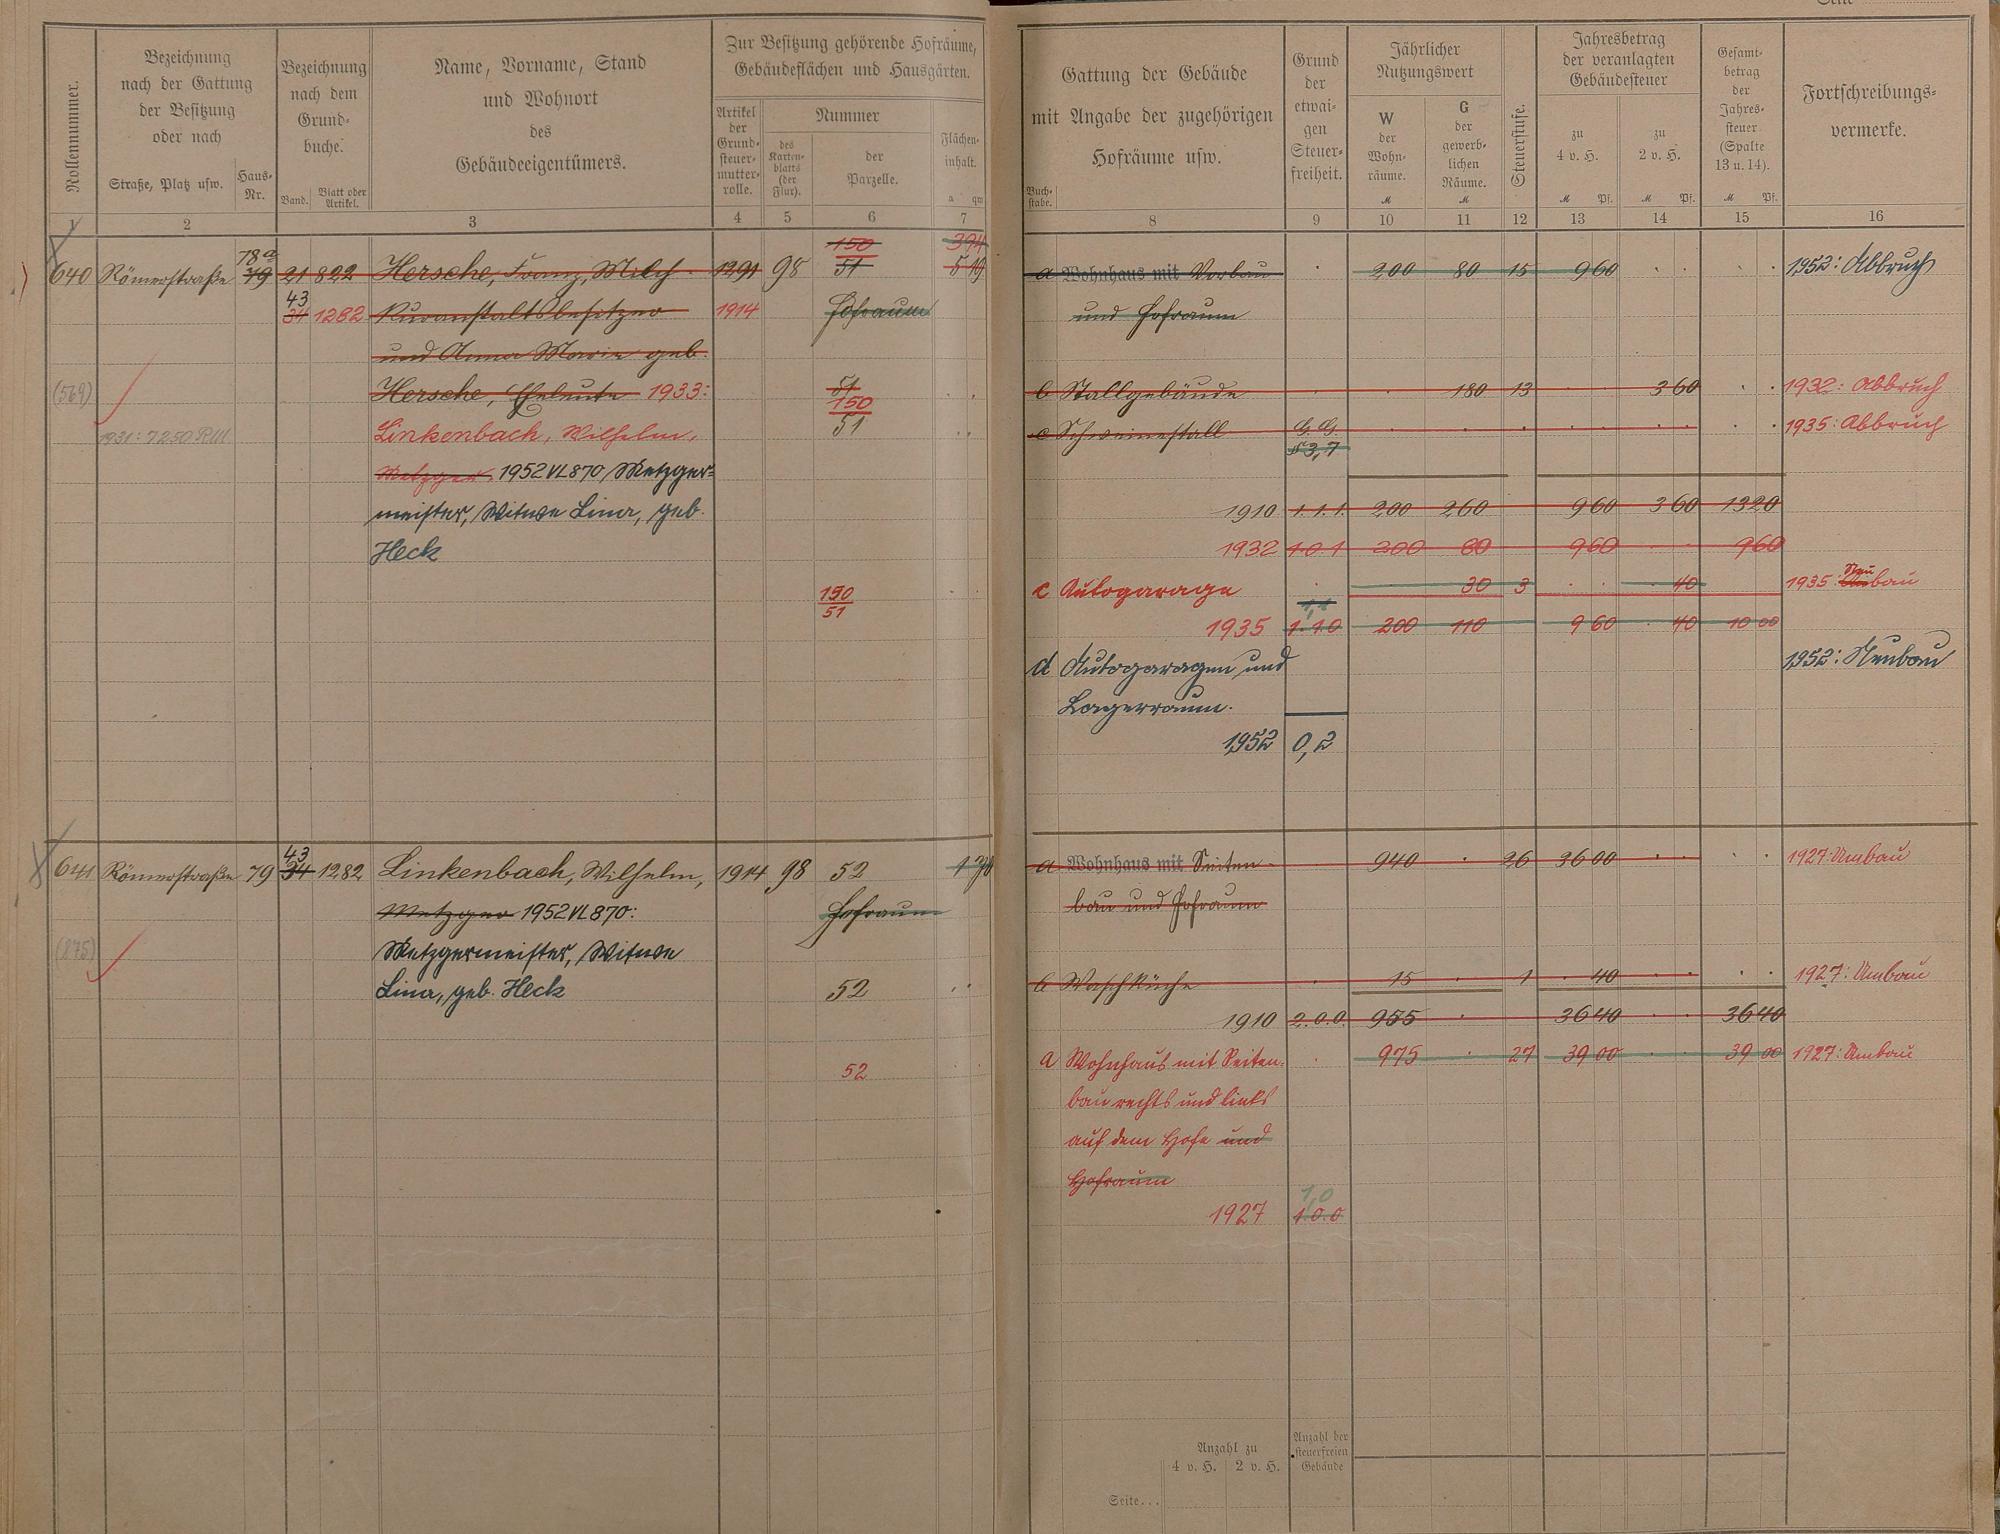 Seite
Rollennummer.
Bezeichnung
nach der Gattung
der Besitzung
oder nach
Straße, Platz usw.
Haus-
Nr.
Bezeichnung
nach dem
Grund-
buche.
Band.
Blatt oder
Artikel.
Name, Vorname, Stand
und Wohnort
des
Gebäudeeigentümers.
Zur Besitzung gehörende Hofräume,
Gebäudeflächen und Hausgärten.
Artikel
der
Grund-
steuer-
mutter-
rolle.
Nummer
des
Karten-
blatts
(der
Flur).
der
Parzelle.
Flächen-
inhalt.
a qm
1 2 3 4 5 6 7
640 Römerstraße 79 78a 21 822 Hersche, Franz, Milch- 1291 98 150 51 394 519
43 34 1282 Kuranstaltsbesitzer 1914 Hofraum
und Anna Marie geb.
(569) Hersche, Eheleute 1933: 51
150
1931: 7250 RM Linkenbach, Wilhelm, 51
Metzger. 1952 VL 870 Metzger-
meister, Witwe Lina, geb.
Heck
150
51
641 Römerstraße 79 43 34 1282 Linkenbach, Wilhelm, 1914 98 52 1 70
Metzger 1952 VL 870: Hofraum
(875) Metzgermeister, Witwe
Lina, geb. Heck 52
52
Buch-
stabe.
Gattung der Gebäude
mit Angabe der zugehörigen
Hofräume usw.
Grund
der
etwai-
gen
Steuer-
freiheit.
Jährlicher
Nutzungswert
W
der
Wohn-
räume.
M
G
der
gewerb-
lichen
Räume.
M
Steuerstufe.
Jahresbetrag
der veranlagten
Gebäudesteuer
zu
4 v. H.
M Pf.
zu
2 v. H.
M Pf.
Gesamt-
betrag
der
Jahres-
steuer
(Spalte
13 u. 14).
M Pf.
Fortschreibungs-
vermerke.
8 9 10 11 12 13 14 15 16
a Wohnhaus mit Vorbau 200 80 15 9 60 1952: Abbruch
und Hofraum
b Stallgebäude 180 13 3 60 1932: Abbruch
c Schweinestall G. G. 1935: Abbruch
§ 3,7
1910 1.1.1. 200 260 9 60 3 60 13 20
1932 1.0.1 200 80 9 60 9 60
c Autogarage 30 3 40 1935: Neubau
1,1
1935 1.1.0 200 110 9 60 40 10 00
d Autogaragen und 1952: Neubau
Lagerraum.
1952 0,2
a Wohnhaus mit Seiten- 940 26 36 00 1927: Umbau
bau und Hofraum
b Waschküche 15 1 40 1927: Umbau
1910 2.0.0. 955 36 40 36 40
a Wohnhaus mit Seiten- 975 27 39 00 39 00 1927: Umbau
bau rechts und links
auf dem Hofe und
Hofraum
1,0
1927 1.0.0
Anzahl zu
4 v. H. 2 v. H.
Anzahl der
steuerfreien
Gebäude
Seite...